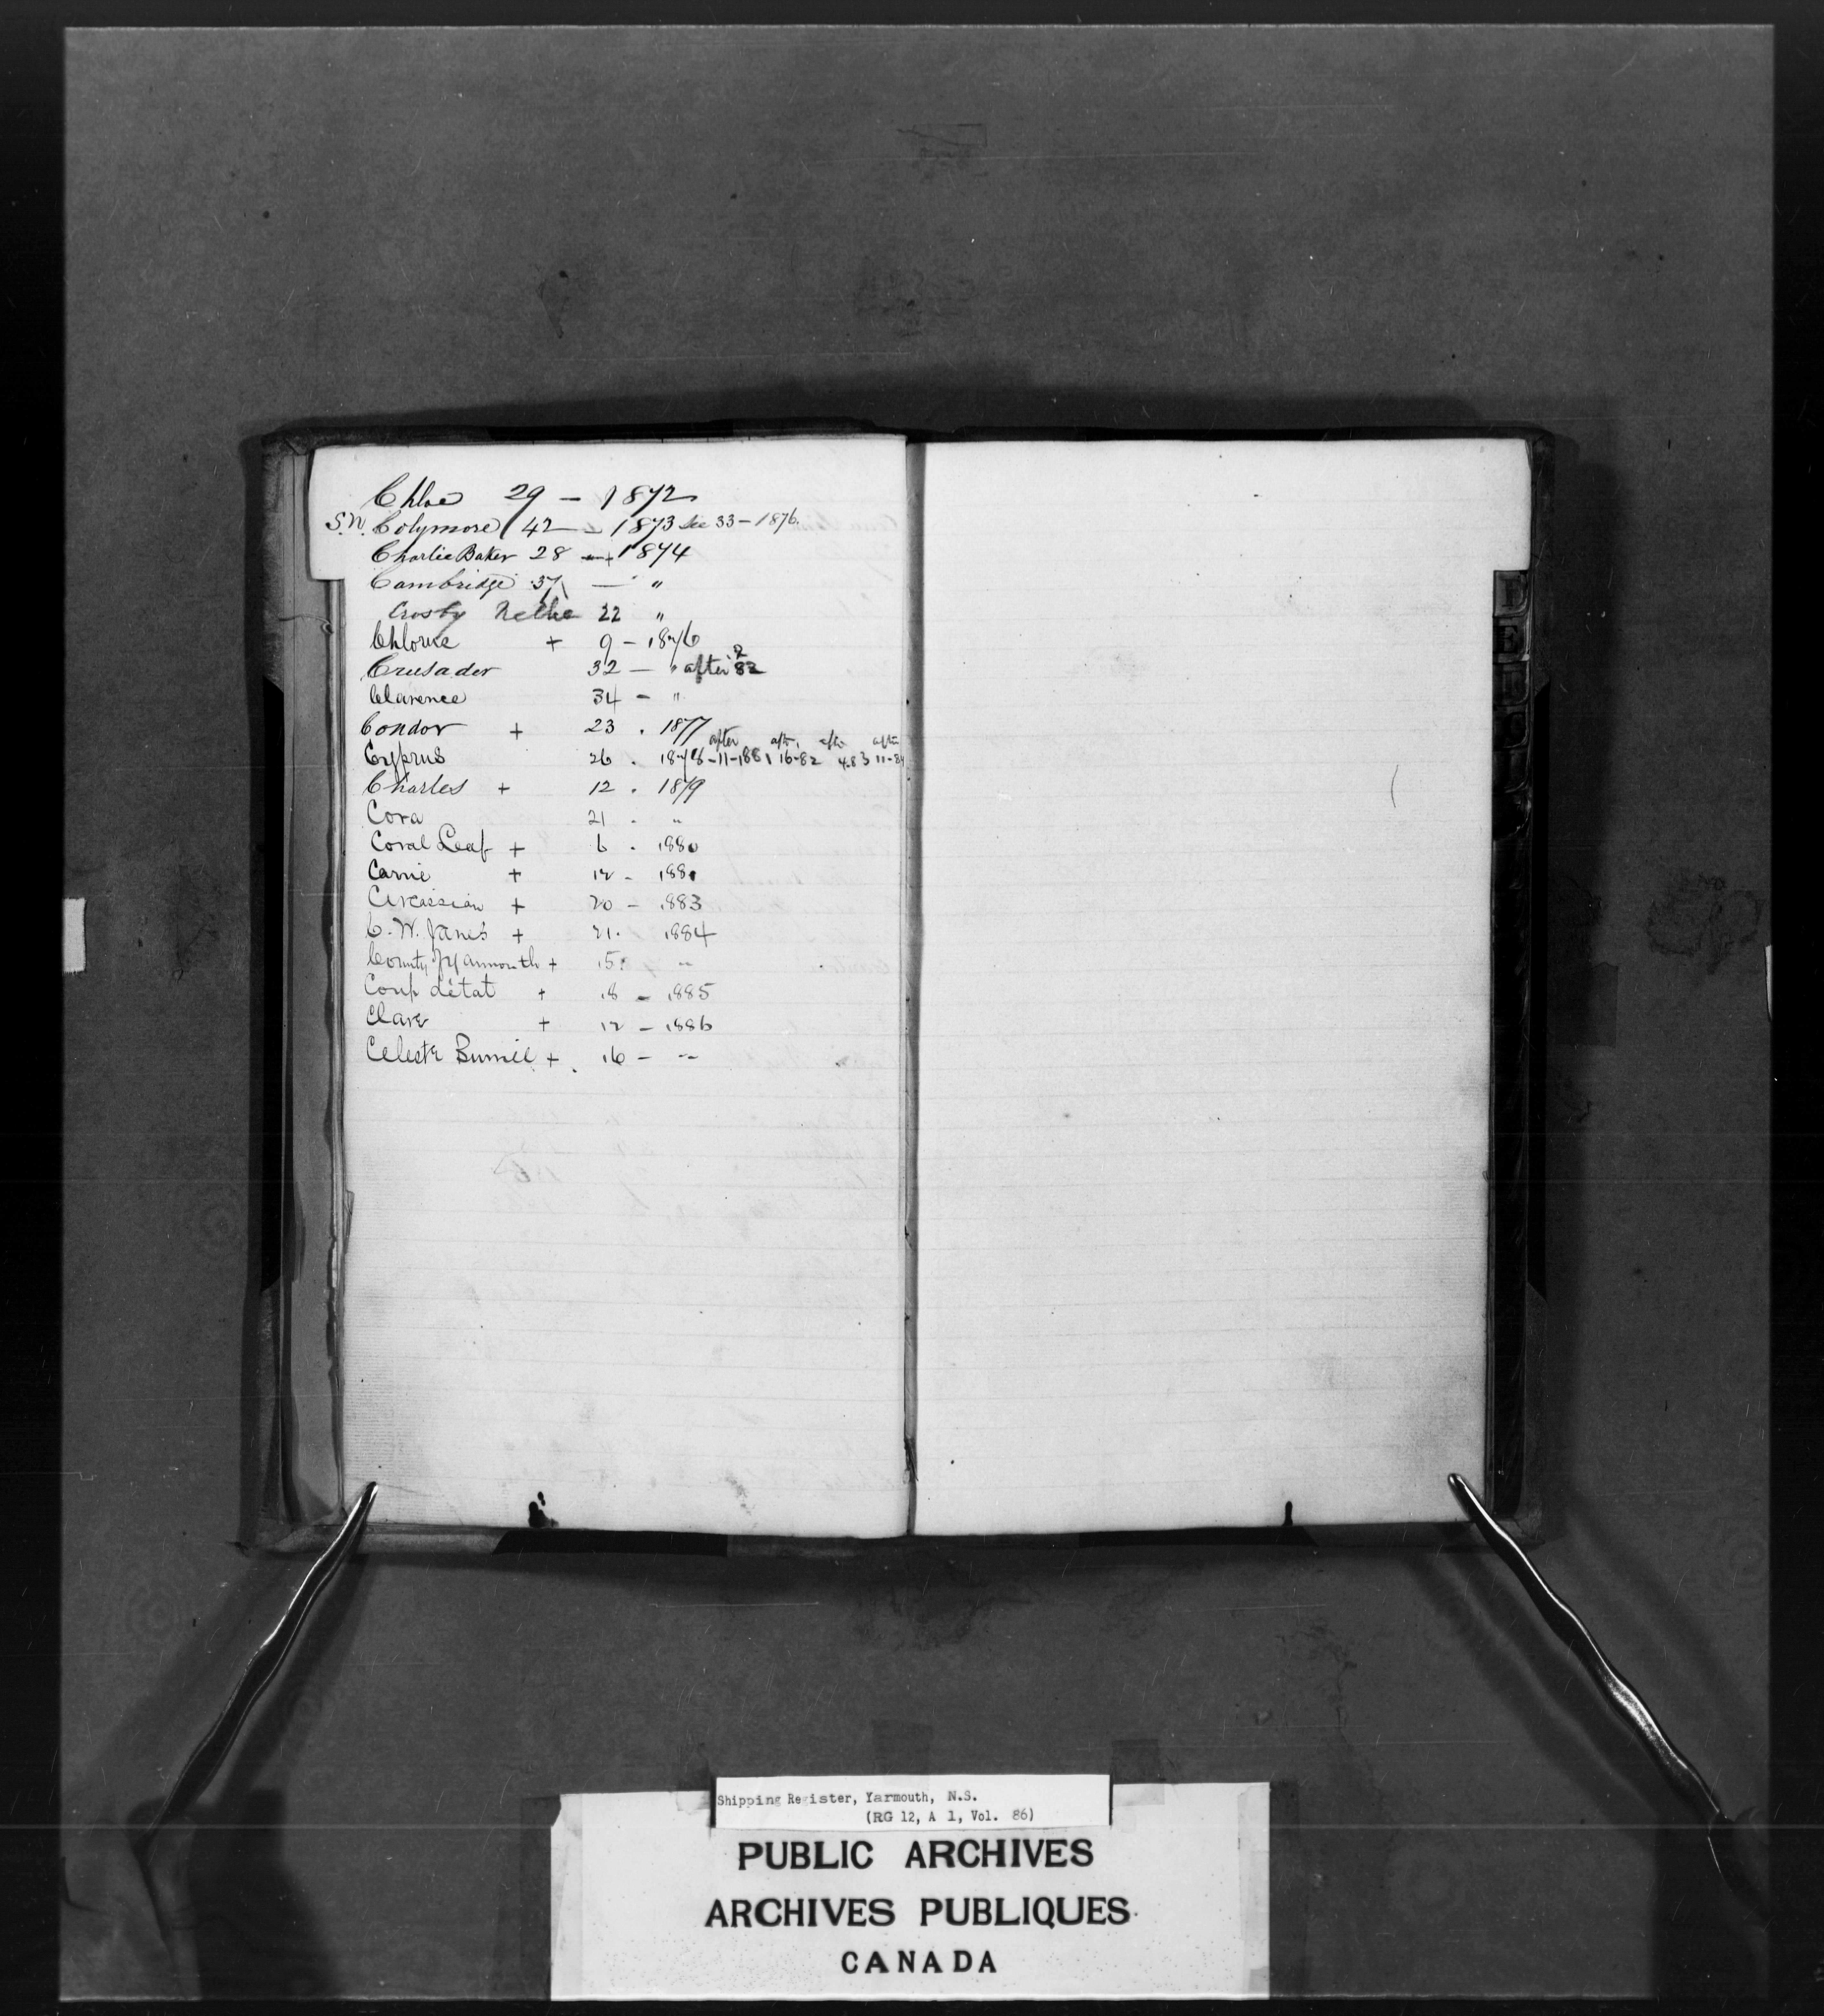 Chloe 29 – 1872
S.N. Colymore 42 – 1873 See 33 – 1876.
Charlie Baker 28 – + 1874
Cambridge 37 — "
Crosby Nellie 22 "
Chlorus + 9 – 1876
Crusader 32 — " after 82
Clarence 34 – "
Condor + 23 . 1877
after aftr. aftr aftr
Cyprus 26 . 1878 – 11-1881 16-82 4.83 11-84
Charles + 12 . 1879
Cora 21 . "
Coral Leaf + 6 . 1880
Carrie + 12 – 1881
Circassian + 20 – 1883
C. W. Janes + 21. 1884
County of Yarmouth + 15. "
Coup d'état + 18 – 1885
Clare + 12 – 1886
Celeste + 16 – "
Shipping Register, Yarmouth, N.S.
(RG 12, A 1, Vol. 86)
PUBLIC ARCHIVES
ARCHIVES PUBLIQUES
CANADA